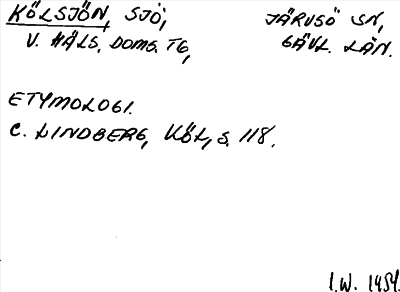 KÖLSJÖN, SJÖ, JÄRVSÖ SN,
V. HÄLS. DOMS. TG, GÄVL. LÄN.
ETYMOLOGI.
C. LINDBERG, KÖL, S. 118.
I.W. 1954.